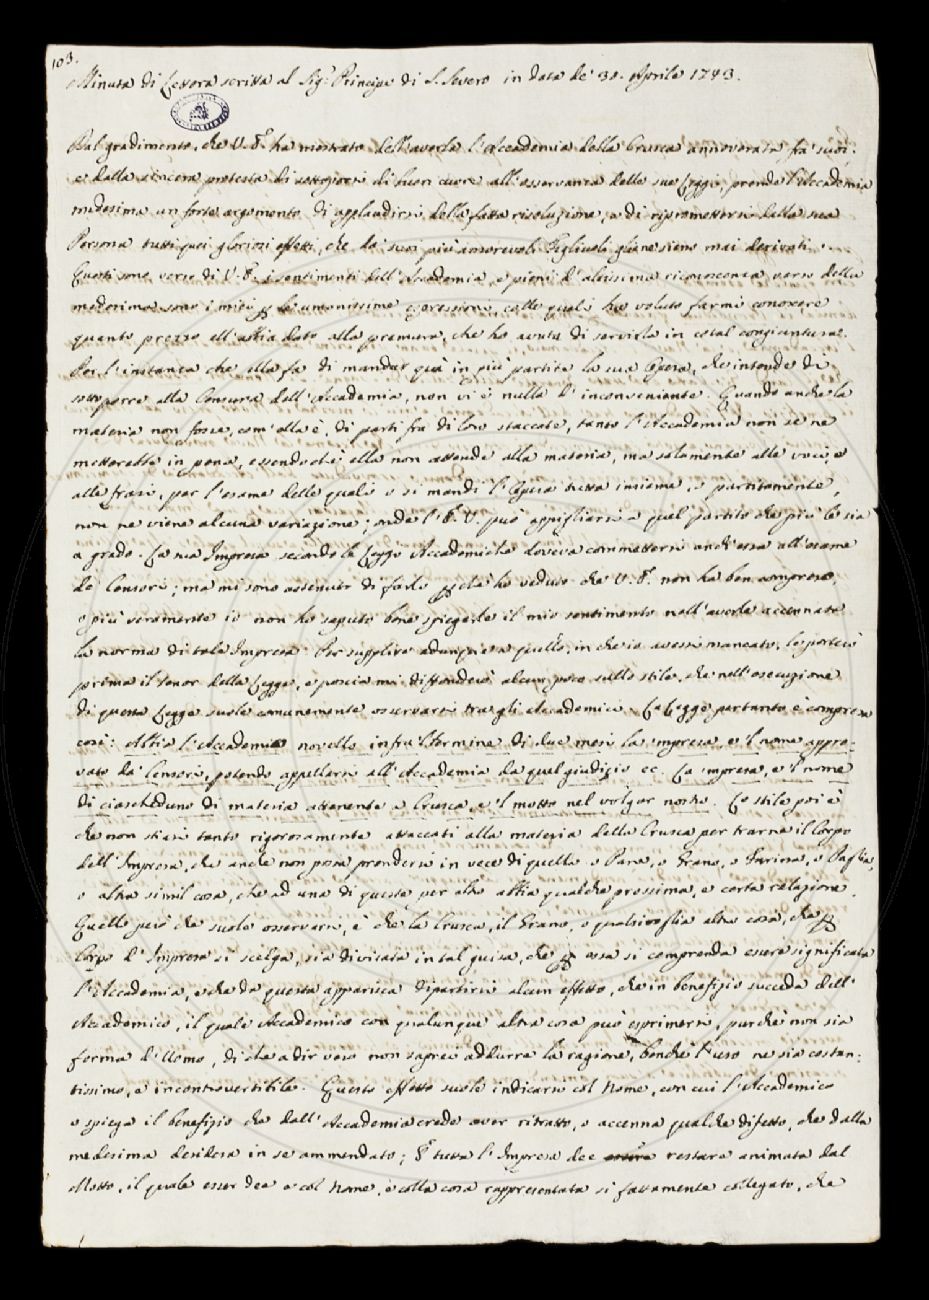 103.
Minuta di Lettera scritta al Sig.r Principe di S. Severo in data de' 30. Aprile 1743.
Dal gradimento, che V. E. ha mostrato dell'averla l'Accademia della Crusca annoverata fra' suoi,
e dalla sincera protesta di sottoporsi di buon cuore all'osservanza delle sue Leggi, prende l'Accademia
medesima un forte argomento di applaudirsi della fatta risoluzione, e di ripromettersi dalla sua
Persona tutti quei gloriosi effetti, che da' suoi più amorevoli Figliuoli gliene sieno mai derivati.
Questi sono verso di V. E. i sentimenti dell'Accademia, e pieni d'altissima riconoscenza verso della
medesima sono i miei p le umanissime espressioni, colle quali ha voluto farmi conoscere
quanto prezzo ell'abbia dato alla premura, che ho avuta di servirla in cotal congiuntura.
Per l'instanza che ella fa di mandar quà in più partite la sua Opera, che intende di
sottoporre alla Censura dell'Accademia, non vi è nulla d'inconveniente. Quando anche la
materia non fosse, com'ella è, di parti fra di loro staccate, tanto l'Accademia non se ne
metterebbe in pena, essendochè ella non attende alla materia, ma solamente alle voci, e
alle frasi, per l'esame delle quali o si mandi l'Opera tutta insieme, o partitamente,
non ne viene alcuna variazione; onde l'E. V. può appigliarsi a quel partito che più le sia
a grado. La sua Impresa secondo le Leggi Accademiche doveva commettersi anch'essa all'esame
de' Censori; ma mi sono astenuto di farlo p chè ho veduto che V. E. non ha ben compreso,
o più veramente io non ho saputo bene spiegarle il mio sentimento nell'averle accennato
la norma di tale Impresa. Per supplire adunque a quello, in che io avessi mancato, le porterò
prima il tenor della Legge, e poscia mi diffonderò alcun poco sullo stile, che nell'esecuzione
di questa Legge suole comunemente osservarsi tra gli Accademici. La Legge pertanto è compresa
così: Abbia l'Accademico novello infra 'l termine di due mesi la impresa, e 'l nome appro-
vato da' Censori, potendo appellarsi all'Accademia da quel giudizio ec. La impresa, e 'l nome
di ciascheduno di materia attenente a Crusca, e 'l motto nel volgar nostro. Lo stile poi è
che non stiasi tanto rigorosamente attaccati alla materia della Crusca per trarne il Corpo
dell'Impresa, che anche non possa prendersi in vece di quella o Pane, o Grano, o Farina, o Paglia,
o altra simil cosa, che ad una di queste per altro abbia qualche prossima, e certa relazione.
Quello però che suole osservarsi, è che la Crusca, il Grano, o qualsivoglia altra cosa, che p
Corpo d'Impresa si scelga, sia divisata in tal guisa, che p essa si comprenda essere significata
l'Accademia, e che da questa apparisca dipartirsi alcun effetto, che in benefizio succeda dell'
Accademico, il quale Accademico con qualunque altra cosa può esprimersi, purchè non sia
forma d'Uomo, di che a dir vero non saprei addurre la ragione, benchè l'uso ne sia costan-
tissimo, e incontrovertibile. Questo effetto suole indicarsi col Nome, con cui l'Accademico
o spiega il benefizio che dall'Accademia crede aver ritratto, o accenna qualche difetto, che dalla
medesima desidera in se ammendato; E tutta l'Impresa dee restare animata dal
Motto, il quale esser dee e col Nome, e colla cosa rappresentata sì fattamente collegato, che